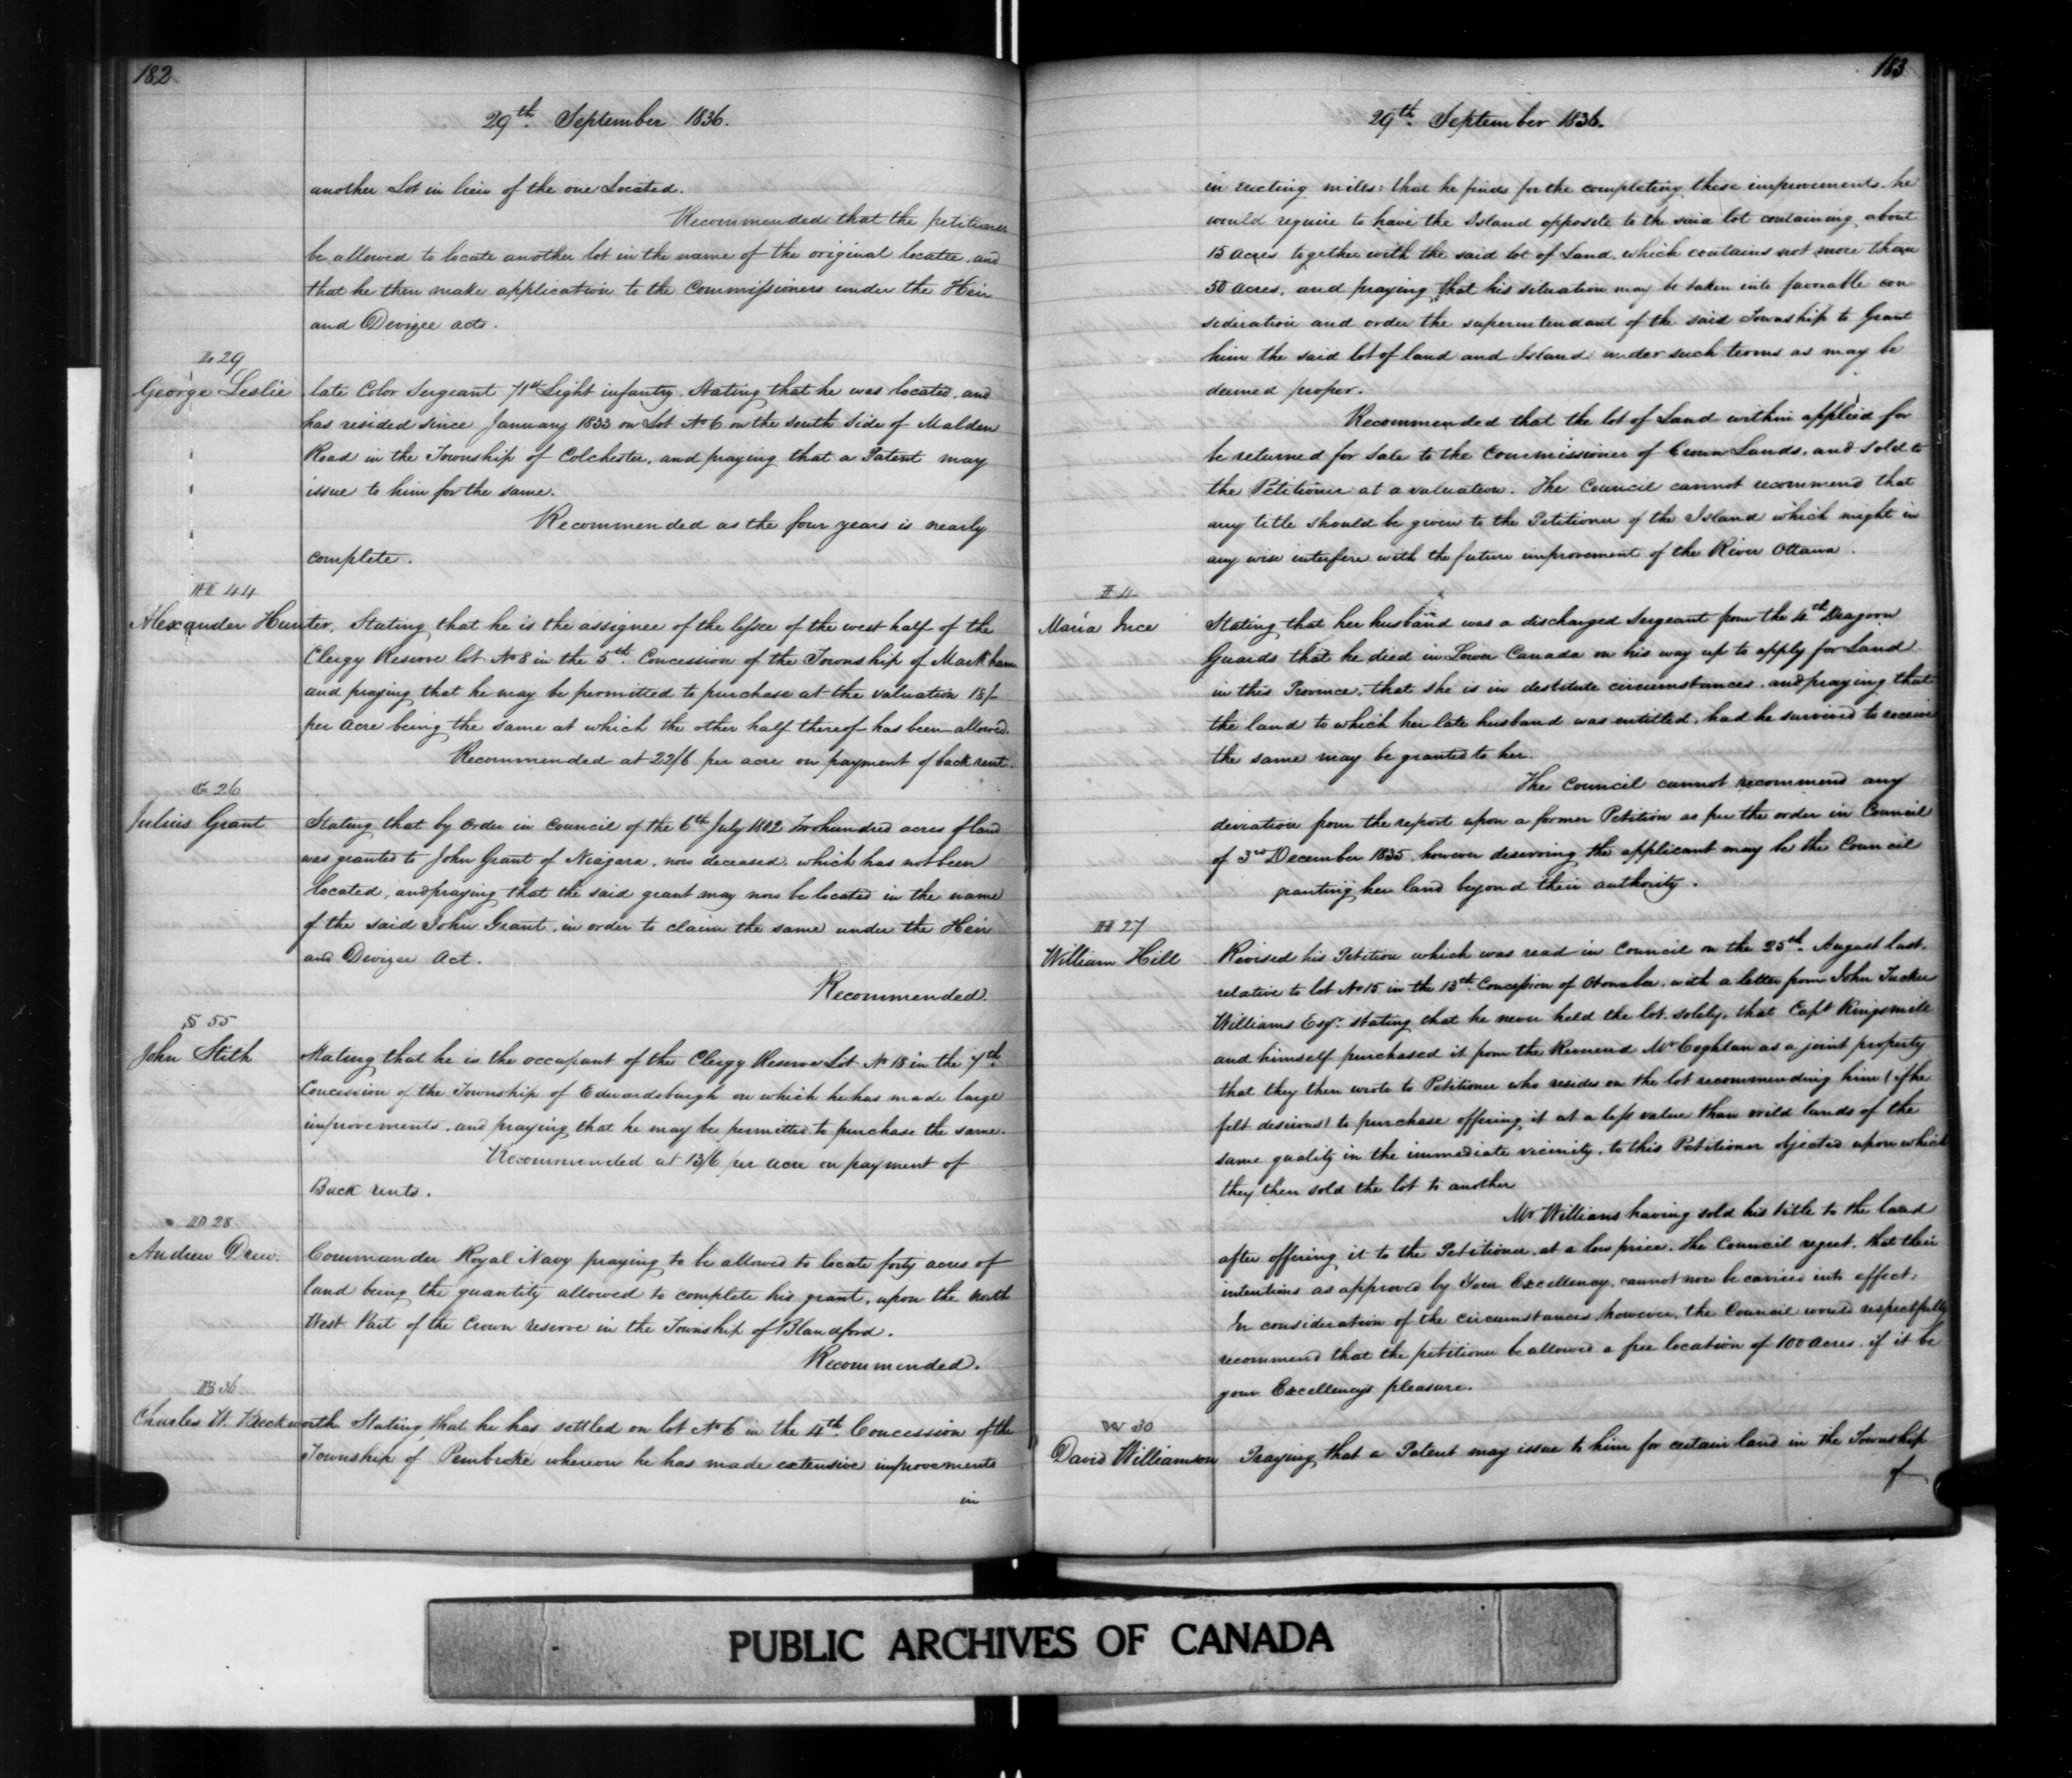 182
29th September 1836.
another Lot in lieu of the one Located.
Recommended that the petitioner
be allowed to locate another lot in the name of the original locatee, and
that he then make application to the Commissioners under the Heir
and Devizee acts.
L 29
George Leslie late Color Sergeant 71st Light infantry. Stating that he was located, and
has resided since January 1833 on Lot No 6 on the South Side of Malden
Road in the Township of Colchester, and praying that a Patent may
issue to him for the same.
Recommended as the four years is nearly
complete.
H 44
Alexander Hunter. Stating that he is the assignee of the lessee of the west half of the
Clergy Reserve lot No 8 in the 5th Concession of the Township of Markham
and praying that he may be permitted to purchase at the valuation 18/-
per acre being the same at which the other half thereof has been allowed.
Recommended at 22/6 per acre on payment of back rent.
G 26
Julius Grant Stating that by Order in Council of the 6th July 1802 Two hundred acres of land
was granted to John Grant of Niagara, now deceased, which has not been
located, and praying that the said grant may now be located in the name
of the said John Grant, in order to claim the same under the Heir
and Devizee Act.
Recommended.
S 55
John Stith Stating that he is the occupant of the Clergy Reserve Lot No 18 in the 7th
Concession of the Township of Edwardsburgh on which he has made large
improvements, and praying that he may be permitted to purchase the same.
Recommended at 13/6 per acre on payment of
Back rents.
D 28
Andrew Drew. Commander Royal Navy praying to be allowed to locate forty acres of
land being the quantity allowed to complete his grant, upon the North
West Part of the Crown reserve in the Township of Blandford.
Recommended.
B 36
Charles W. Beckworth Stating that he has settled on lot No 6 in the 4th Concession of the
Township of Pembroke whereon he has made extensive improvements
in
183
29th September 1836.
in erecting mills: that he finds for the completing these improvements he
would require to have the Island opposite to the said lot containing about
15 acres together with the said lot of Land, which contains not more than
50 acres, and praying that his situation may be taken into favorable con
sideration and order the superintendant of the said Township to Grant
him the said lot of land and Island under such terms as may be
deemed proper.
Recommended that the lot of Land within applied for
be returned for Sale to the Commissioner of Crown Lands, and sold to
the Petitioner at a valuation. The Council cannot recommend that
any title should be given to the Petitioner of the Island which might in
any wise interfere with the future improvement of the River Ottawa.
I 4
Maria Ince Stating that her husband was a discharged Sergeant from the 4th Dragoon
Guards that he died in Lower Canada on his way up to apply for Land
in this Province, that she is in destitute circumstances, and praying that
the land to which her late husband was entitled, had he survived to receive
the same may be granted to her.
The Council cannot recommend any
deviation from the report upon a former Petition as per the order in Council
of 3rd December 1835, however deserving the applicant may be the Council
granting her land beyond their authority.
H 27
William Hill Revised his Petition which was read in Council on the 25th August last.
relative to lot No 15 in the 13th Concession of Otonabee, with a letter from John Tucker
Williams Esqr. stating that he never held the lot solely, that Capt Kingsmill
and himself purchased it from the Reverend Mr Coghlan as a joint property
that they then wrote to Petitioner who resides on the lot recommending him (if he
felt desirous) to purchase offering it at a less value than wild lands of the
same quality in the immediate vicinity, to this Petitioner objected upon which
they then sold the lot to another
Mr Williams having sold his title to the land
after offering it to the Petitioner, at a low price. The Council regret, that their
intentions as approved by Your Excellency, cannot now be carried into effect,
In consideration of the circumstances, however, the Council would respectfully
recommend that the petitioner be allowed a free location of 100 acres, if it be
your Excellency's pleasure.
W 30
David Williamson Praying that a Patent may issue to him for certain land in the Township
of
PUBLIC ARCHIVES OF CANADA